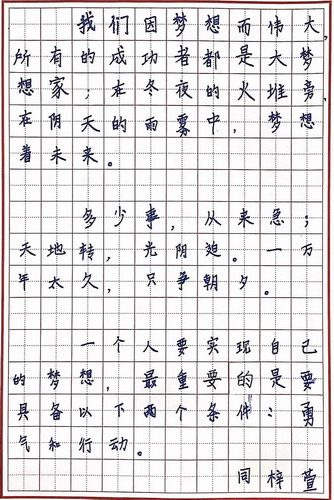 我们因梦想而伟大,
所有的成功者都是大梦
想家;在冬夜的火堆旁,
在阴天的雨雾中,梦想
着未来。
多少事,从来急;
天地转,光阴迫。一万
年太久,只争朝夕。
一个人要实现自己
的梦想,最重要的是要
具备以下两个条件:勇
气和行动。
同梓萱